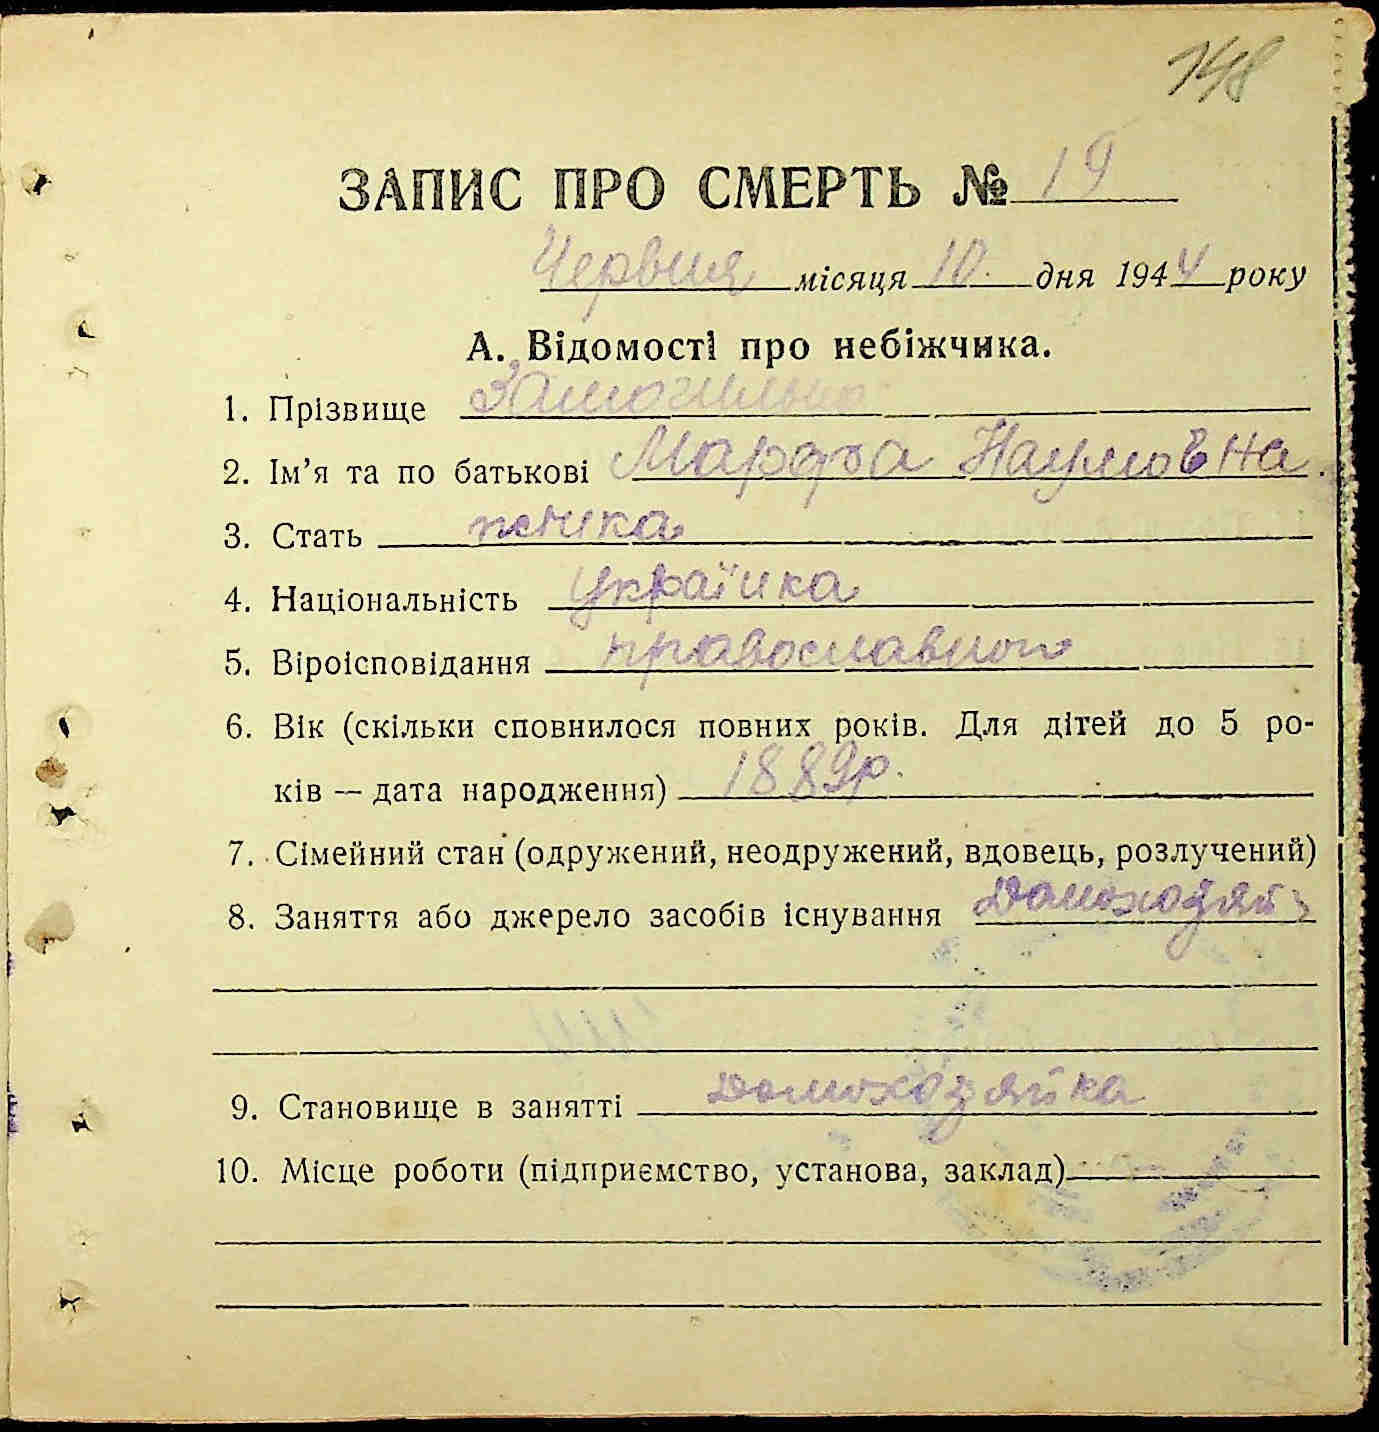 148
ЗАПИС ПРО СМЕРТЬ № 19
Червня місяця 10. дня 1944 року
А. Відомості про небіжчика.
1. Прізвище Замогильна
2. Ім’я та по батькові Марфа Наумовна.
3. Стать жінка
4. Національність Українка
5. Віроісповідання православної
6. Вік (скільки сповнилося повних років. Для дітей до 5 ро-
ків — дата народження) 1889р.
7. Сімейний стан (одружений, неодружений, вдовець, розлучений)
8. Заняття або джерело засобів існування
9. Становище в занятті домохозяйка
10. Місце роботи (підприємство, установа, заклад)